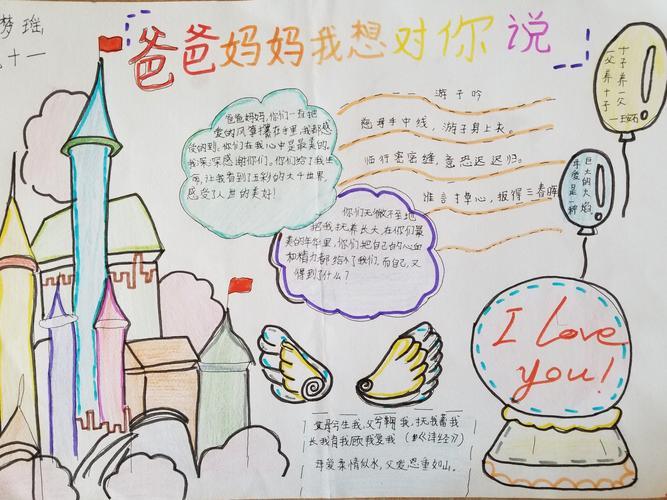 梦瑶
十一
爸爸妈妈我想对你说
爸爸妈妈,你们一直把
爱的风筝攥在手里,我都感
受的到,你们在我心中是最美的,
我深深感谢你们。你们给了我生
命,让我看到了五彩的大千世界,
感受了人世的美好!
你们无微不至地
把我抚养长大,在你们最
美的年华里,你们把自己的心血
和精力都给了我们,而自己,又
得到了什么?
游子吟
慈母手中线,游子身上衣。
临行密密缝,意恐迟迟归。
谁言寸草心,报得三春晖
一父养十子
十子养一父
巨大的火焰
母爱是一种
I love
you!
父兮生我,母兮鞠我,抚我畜我
长我育我顾我复我
母爱柔情似水,父爱恩重如山。